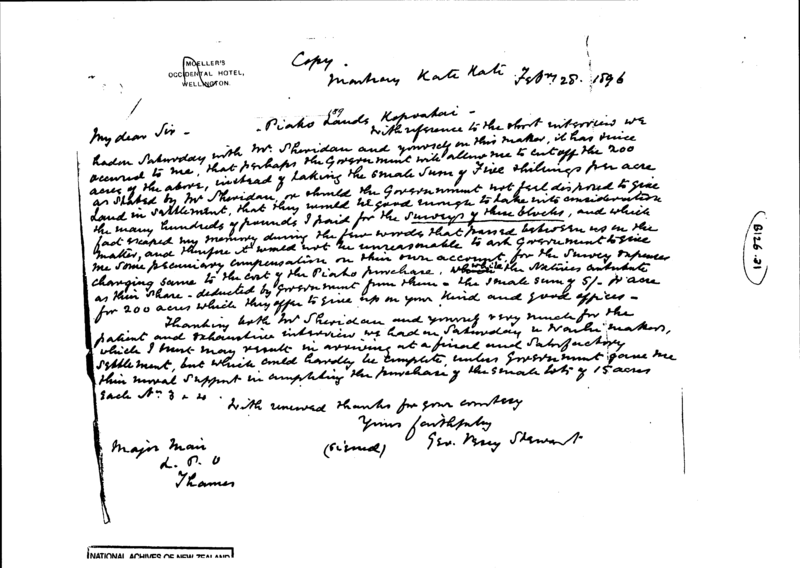 MOELLER'S
OCCIDENTAL HOTEL,
WELLINGTON.
Copy.
Kati Kati Feb 28. 1896
My dear Sir - Piako Lands Hopuhai -
With reference to the short interview we
had on Saturday with Mr. Sheridan and yourself on this matter, it has since
occured to me, that perhaps the Government will allow me to cut off the 200
acres of the above, instead of taking the small sum of Five shillings per acre
as stated by Mr Sheridan, or should the Government not feel disposed to give
Land in settlement, that they would be good enough to take into consideration
the many hundreds of pounds I paid for the surveys of these blocks, and which
fact escaped my memory during the few words that passed between us on the
matter, and therefore it would not be unreasonable to ask Government to give
me some pecuniary compensation on their own account, for the Survey expenses
charging same to the cost of the Piako purchase, while the Natives contribute
as their share - deducted by Government from them - the small sum of 5/- per acre
for 200 acres which they offer to give up on your kind and good offices -
Thanking both Mr Sheridan and yourself very much for the
patient and exhaustive interview we had on Saturday matters,
which I trust may result in arriving at a final and satisfactory
settlement, but which could hardly be complete, unless Government gave me
their moral support in completing the purchase of the small lots of 15 acres
each No 3 & 4.
With renewed thanks for your courtesy
Yours faithfully
(signed) Geo. Vesey Stewart
Major Mair
L. P. O
Thames
B126.21
NATIONAL ARCHIVES OF NEW ZEALAND